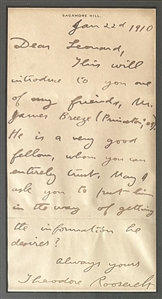 SAGAMORE HILL.
Jan 22d 1910
Dear Leonard,
This will
introduce to you one
of my friends, Mr.
James Breeze (Princeton '09).
He is a very good
fellow, whom you can
entirely trust. May I
ask you to put him
in the way of getting
the information he
desires?
Always yours
Theodore Roosevelt